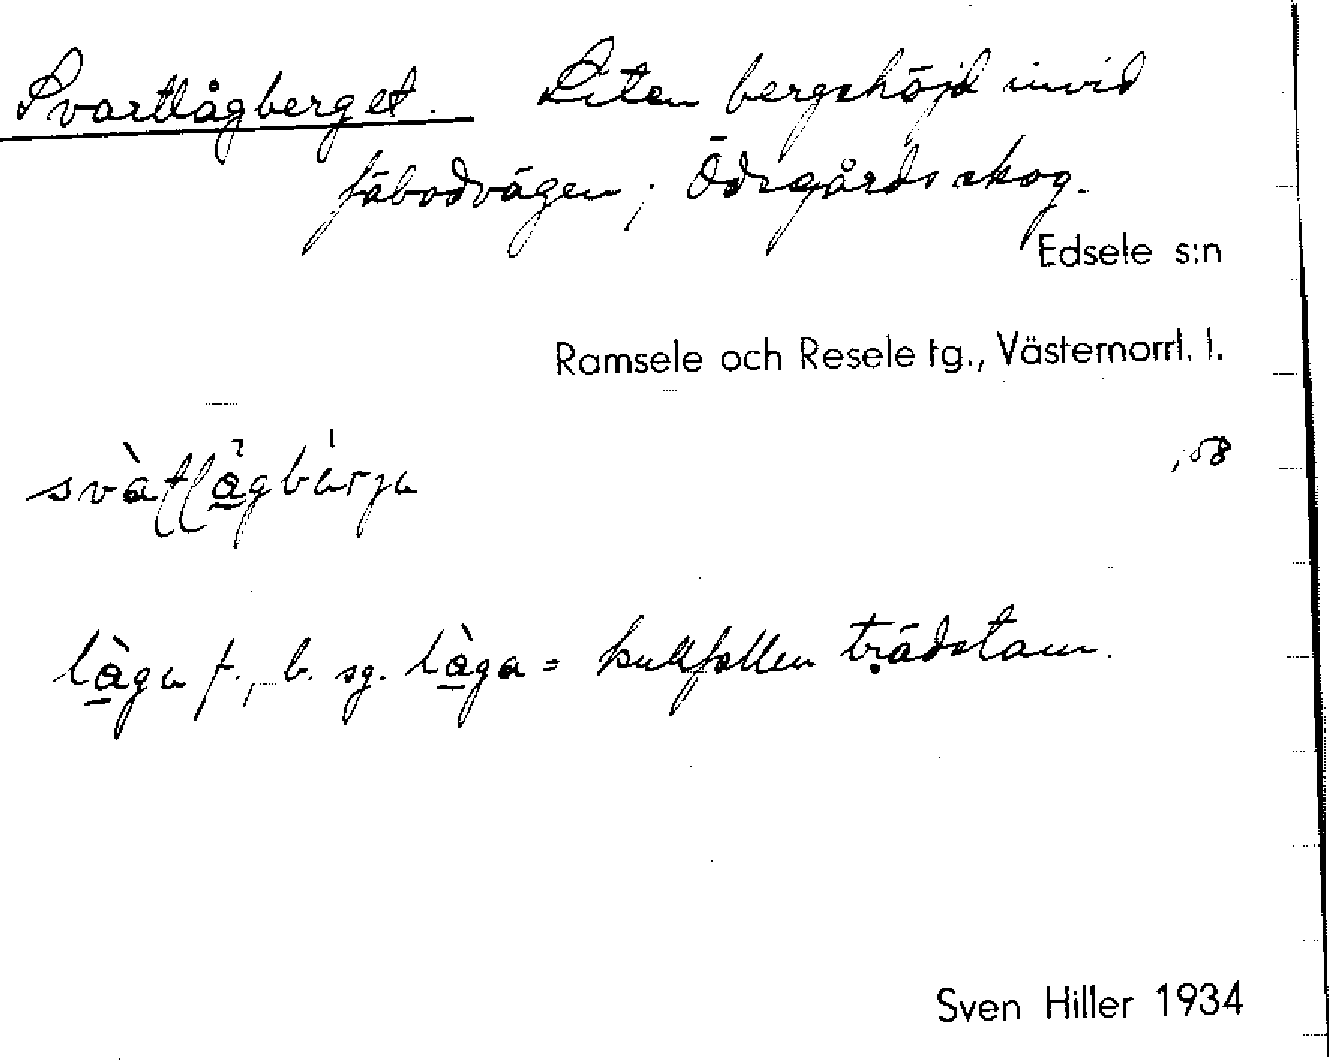 Svartlågberget. Liten bergshöjd invid
fäbodvägen; Ödsgårds skog.
Edsele s:n
Ramsele och Resele tg., Västernorrl. l.
svàtlågbárja
,58
låga f., b. sg. låga = kullfallen trädstam.
Sven Hiller 1934